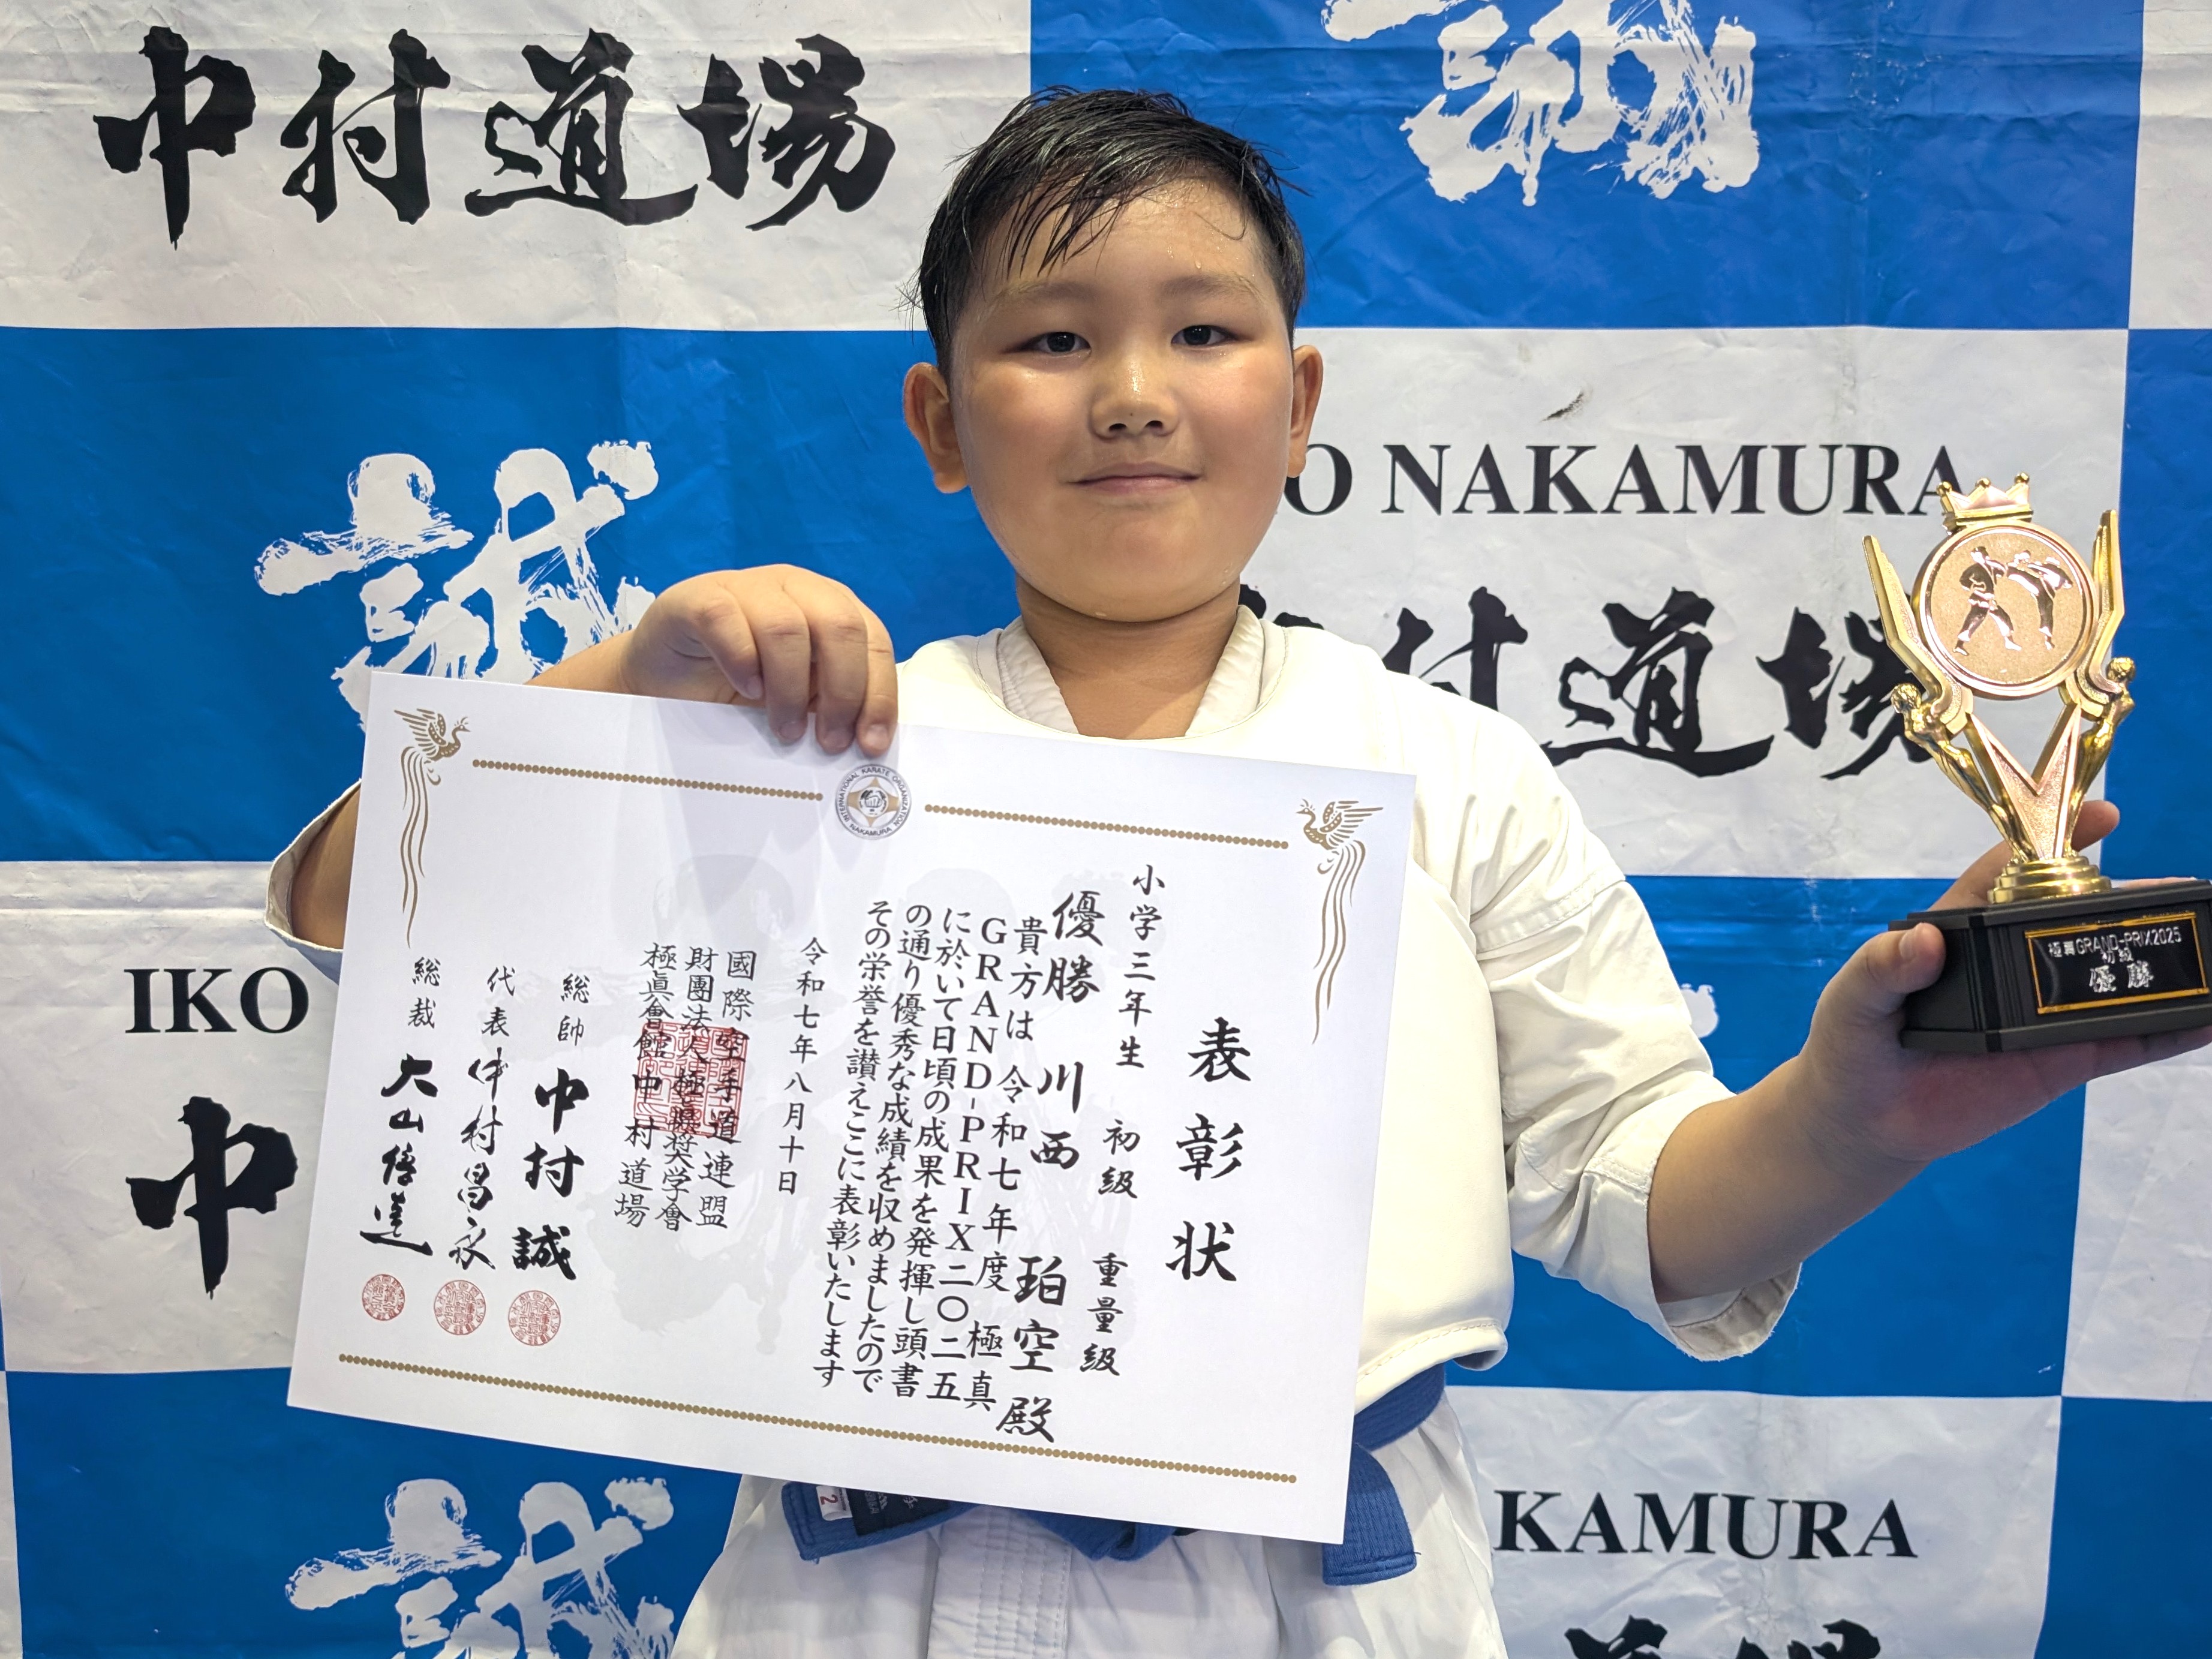 中村道場
誠
誠
IKO NAKAMURA
中村道場
IKO
中
誠
KAMURA
道場
INTERNATIONAL KARATE ORGANIZATION
NAKAMURA
表彰状
小学三年生 初級 重量級
優勝 川西 珀空 殿
貴方は 令和七年度 極真
GRAND-PRIX二〇二五
に於いて日頃の成果を発揮し頭書
の通り優秀な成績を収めましたので
その栄誉を讃えここに表彰いたします
令和七年八月十日
國際空手道連盟
財團法人極真奨学會
極眞會館中村道場
総帥 中村 誠
代表 中村昌永
総裁 大山倍達
極真GRAND-PRIX2025
初級
優勝
2